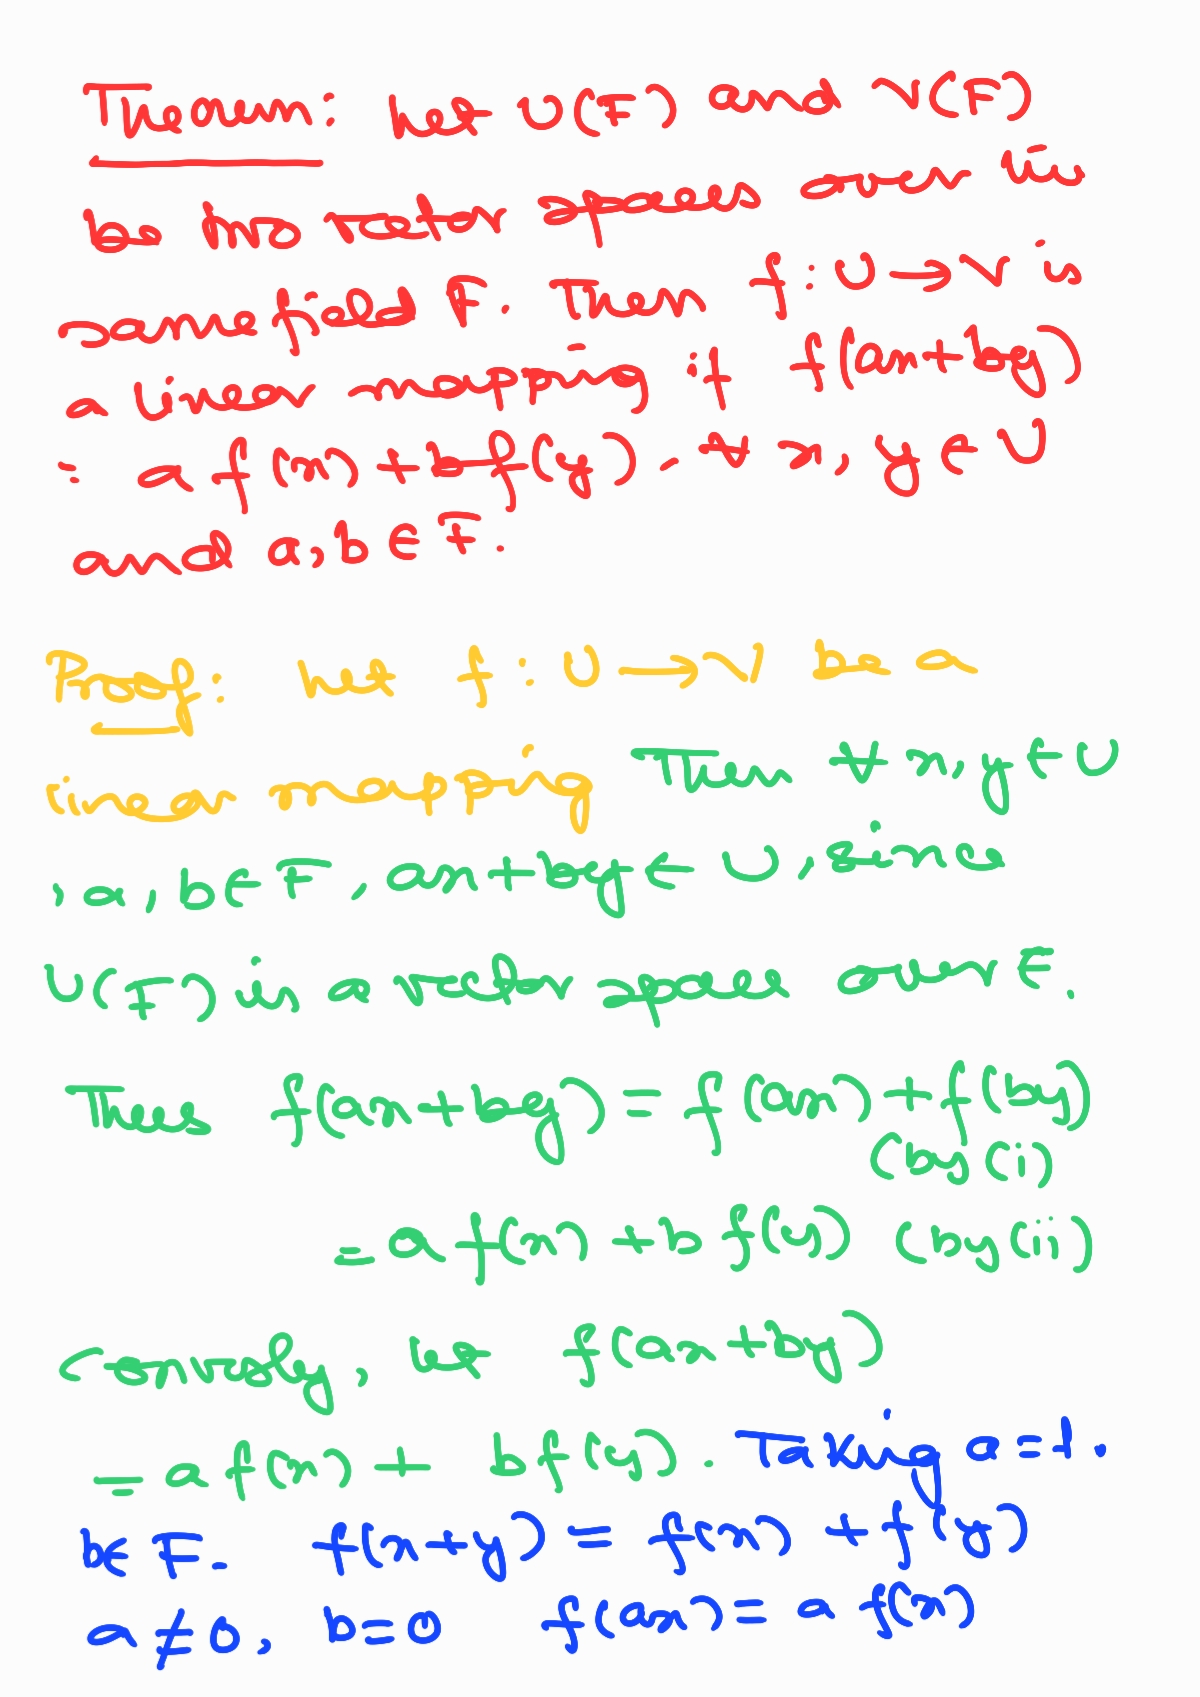 Theorem: Let U(F) and V(F)
be two vector spaces over the
same field F. Then f : U → V is
a linear mapping if f(ax+by)
= a f(x) + b f(y). ∀ x, y ∈ U
and a, b ∈ F.
Proof: Let f : U → V be a
linear mapping Then ∀ x, y ∈ U
, a, b ∈ F, ax+by ∈ U, since
U(F) is a vector space over F.
Thus f(ax+by) = f(ax) + f(by)
(by (i)
= a f(x) + b f(y) (by (ii)
Conversly, let f(ax+by)
= a f(x) + b f(y). Taking a=1.
b∈ F. f(x+y) = f(x) + f(y)
a ≠ 0, b=0 f(ax) = a f(x)